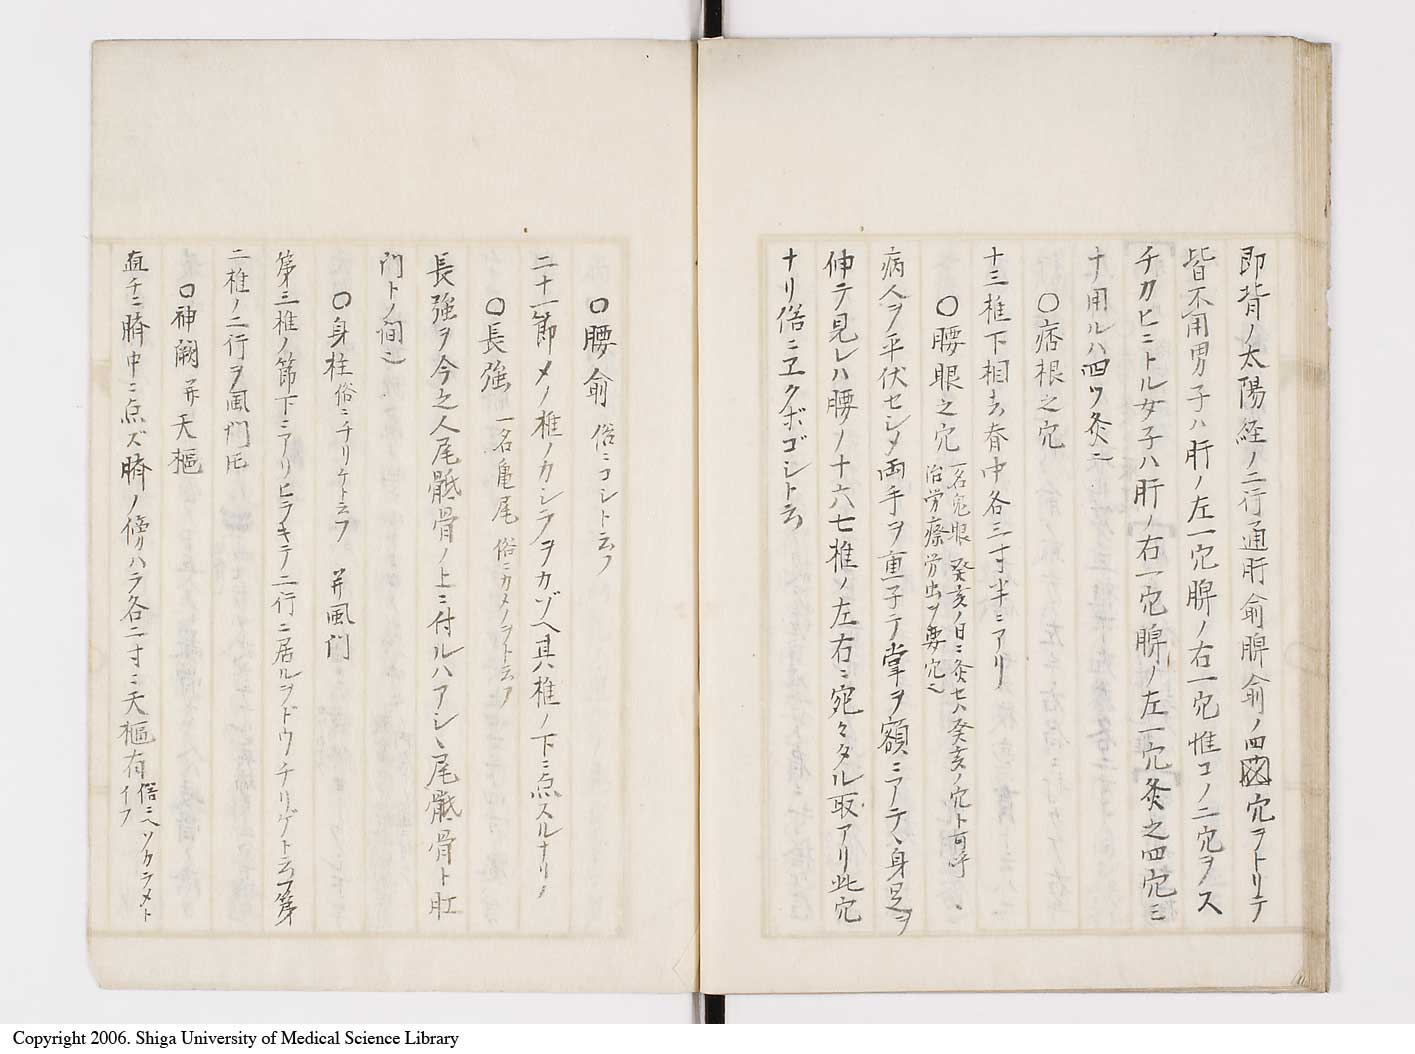 即背ノ太陽経ノ二行通肝俞脾俞ノ四穴ヲトリテ
皆不用男子ハ肝ノ左一穴脾ノ右一穴惟コノ二穴ヲス
チカヒニトル女子ハ肝ノ右一穴脾ノ左一穴灸之四穴ニ
十用ルハ四ツ灸ニ
〇痞根之穴
十三椎下相去脊中各三寸半ニアリ
〇腰眼之穴 一名鬼眼 癸亥ノ日ニ灸セハ癸亥ノ穴ト可呼
治労瘵労虫ヲ要穴也
病人ヲ平伏セシメ両手ヲ重子テ掌ヲ額ニアテ、身足ヲ
伸テ見レハ腰ノ十六七椎ノ左右ニ宛々タル取アリ此穴
ナリ俗ニヱクボゴシト云
〇腰俞 俗ニコシト云フ
二十一節メノ椎ノカシラヲカゾヘ其椎ノ下ニ点スルナリ
〇長強 一名亀尾 俗ニカメノヲト云フ
長強ヲ今之人尾骶骨ノ上ニ付ルハアシヽ尾骶骨ト肛
門トノ間也
〇身柱 俗ニチリケト云フ 并風門
第三椎ノ節下ニアリヒラキテ二行ニ居ルヲドウチリゲト云フ第
二椎ノ二行ヲ風門
〇神闕 并天樞
直チニ臍中ニ点ズ臍ノ傍ハラ各二寸ニ天樞有 俗ニヘソカラメト
イフ